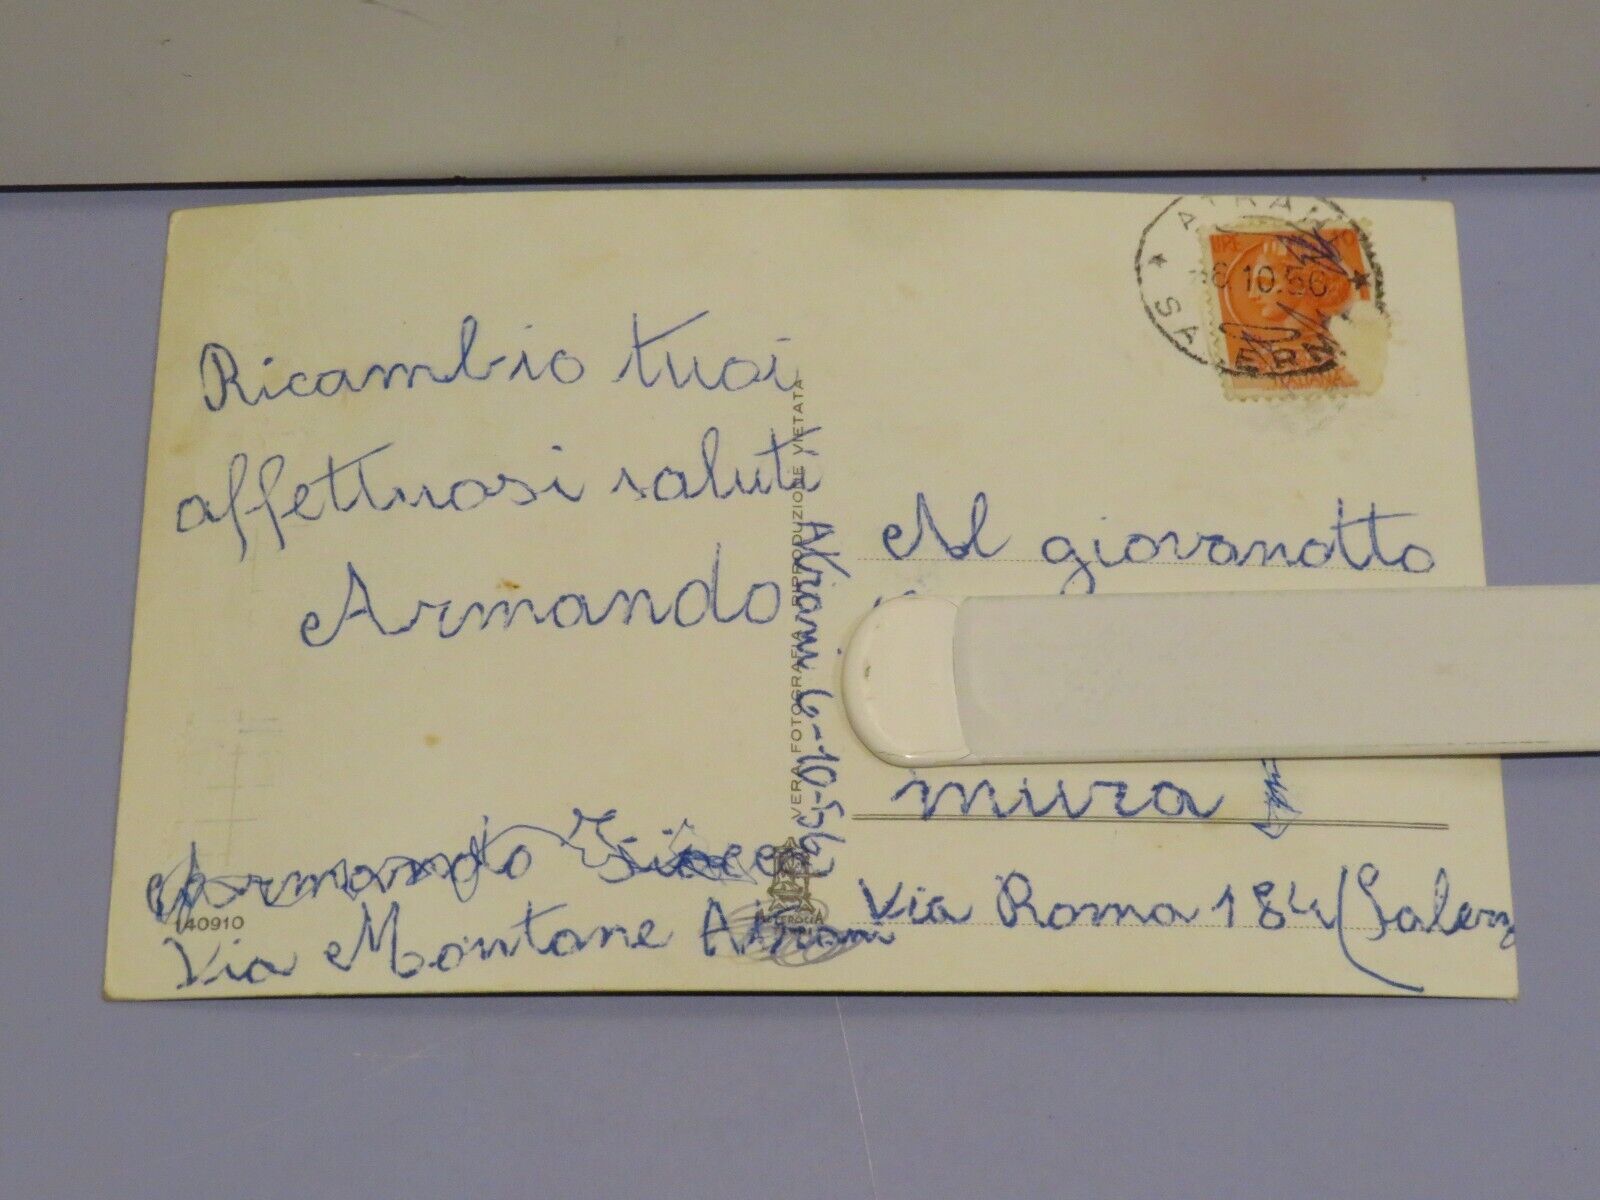 Ricambio tuoi
affettuosi saluti
Armando
Armando
Via Montone Atrani
140910
VERA FOTOGRAFIA RIPRODUZIONE VIETATA
Atrani 6-10-56
ATRANI
6.10.56
SALERNO
LIRE
ITALIANA
Al giovanotto
mura
Via Roma 184 (Salerno